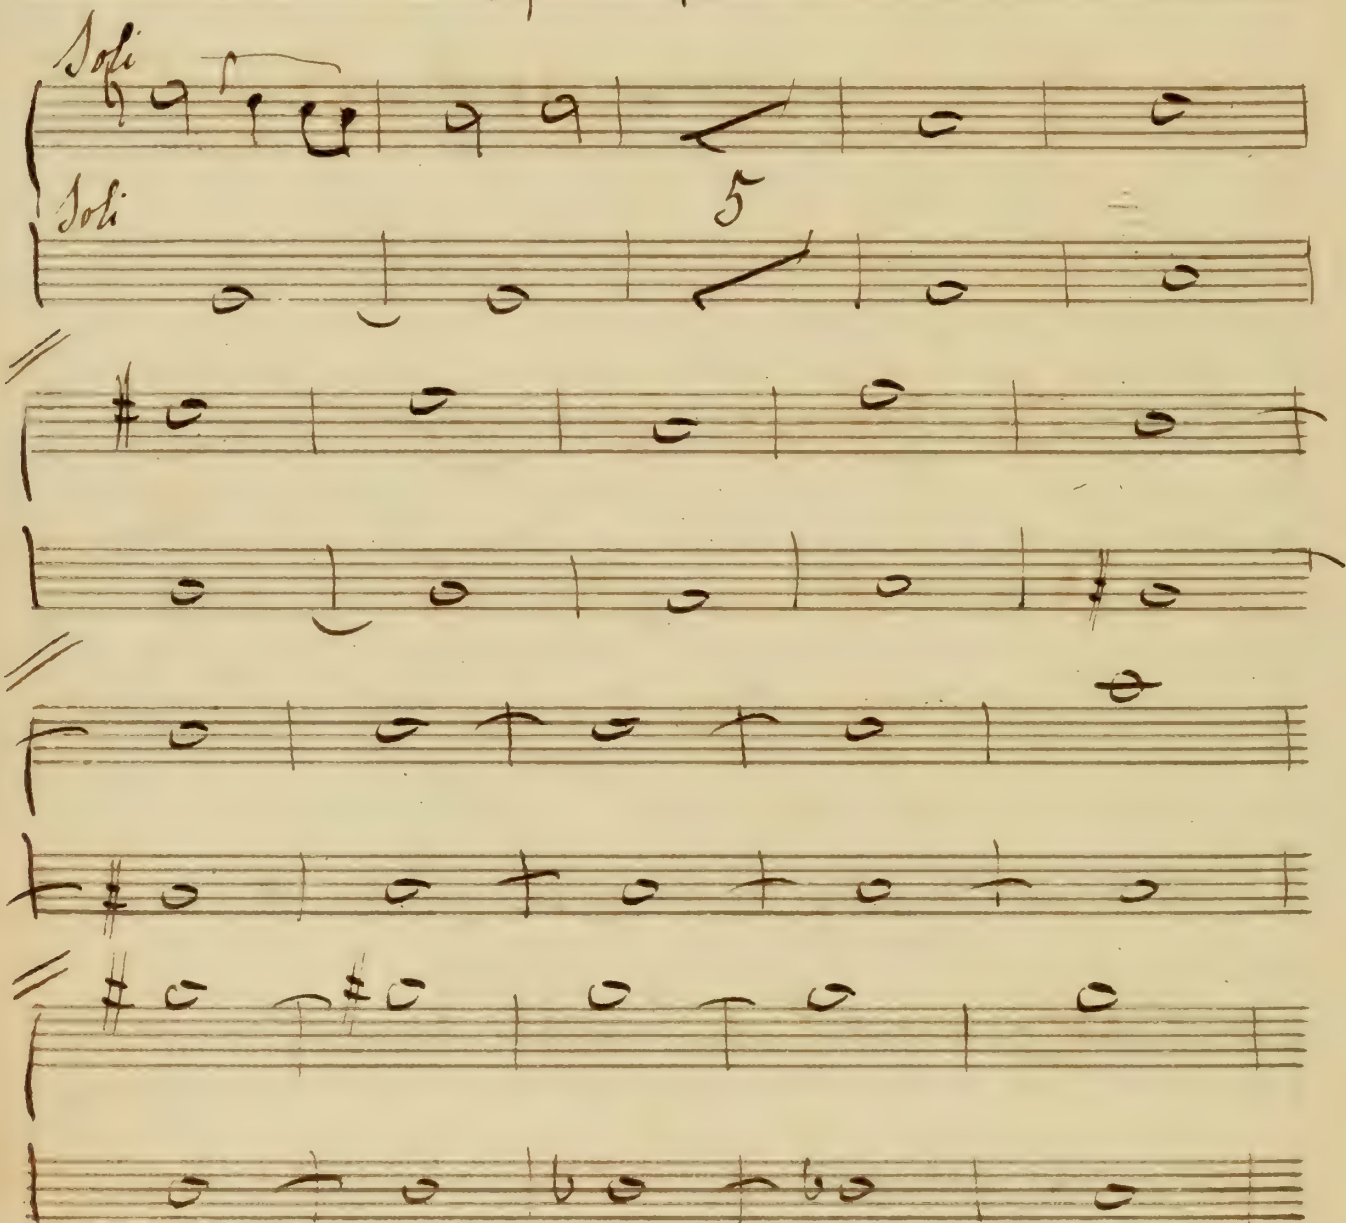 Soli
Soli
5